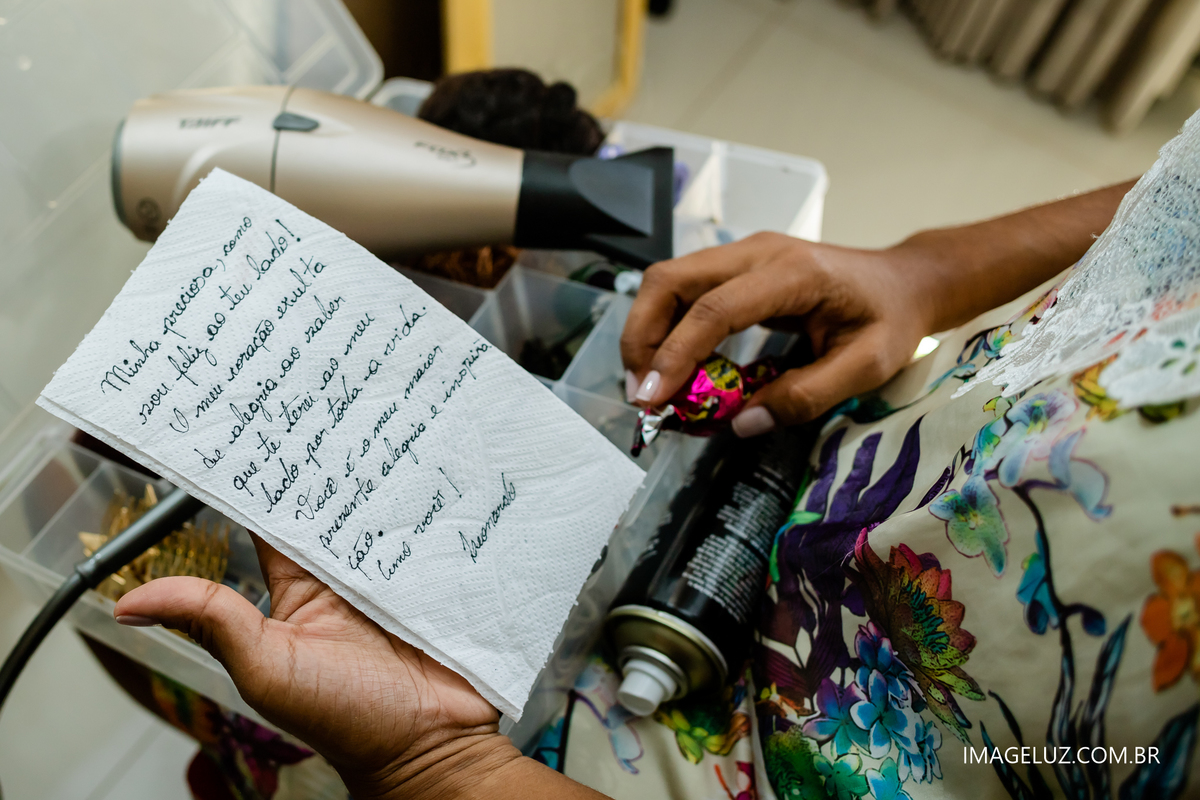 Minha preciosa, como
sou feliz ao teu lado!
O meu coração exulta
de alegria ao saber
que te terei ao meu
lado por toda a vida.
Você é o meu maior
presente alegria e inspira
ção.
Amo você!
Leonardo
TAIFF
IMAGELUZ.COM.BR